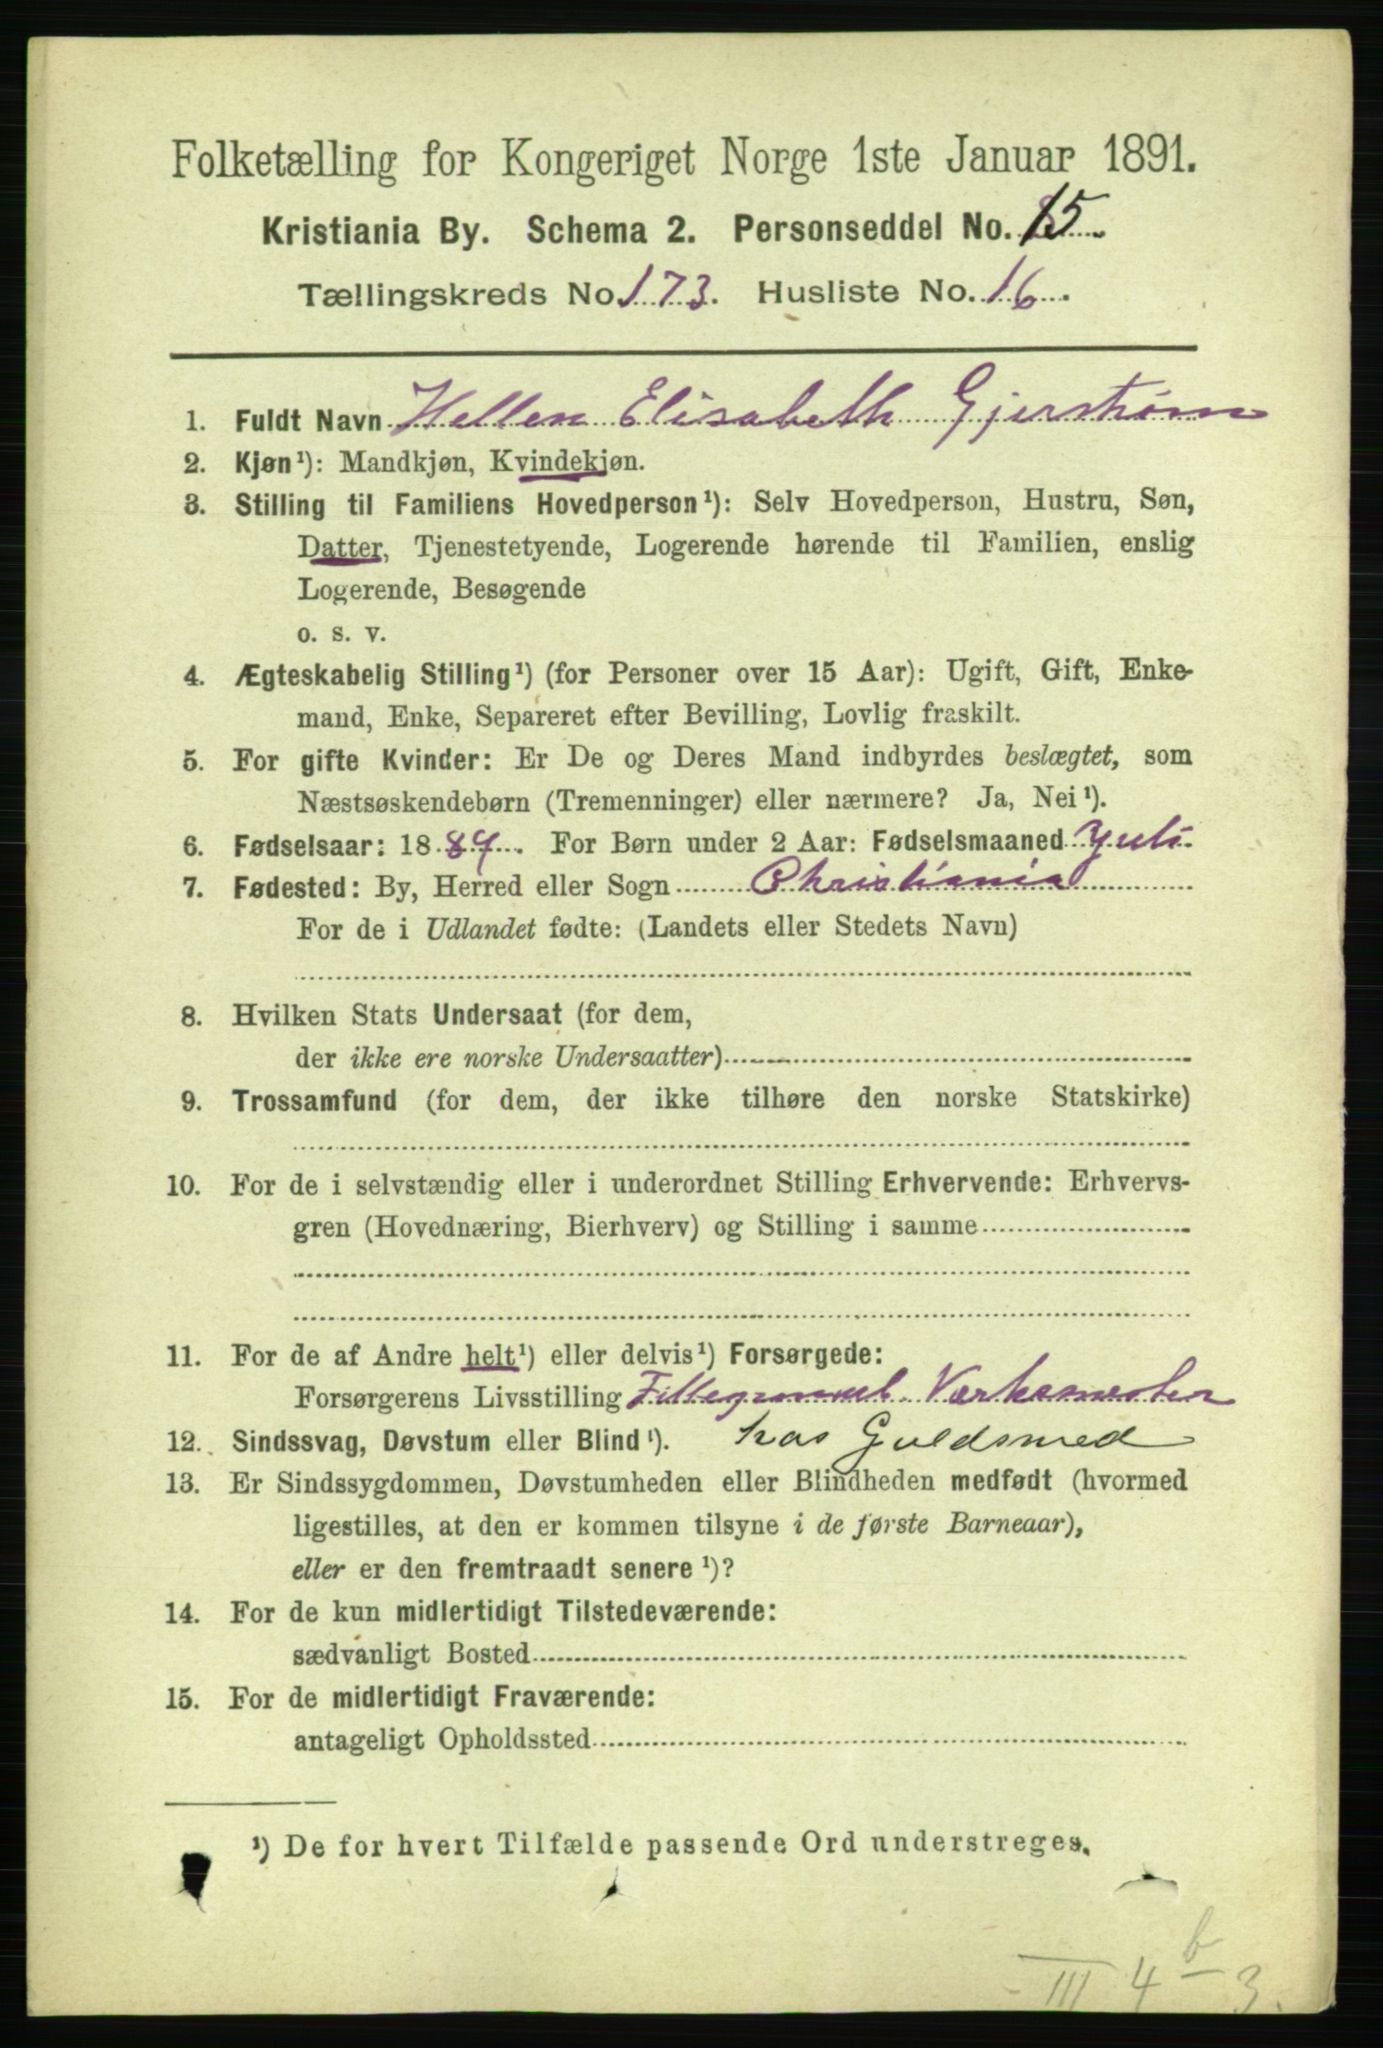 Folketælling for Kongeriget Norge 1ste Januar 1891.
Kristiania By. Schema 2. Personseddel No. 15.
Tællingskreds No. 173. Husliste No. 16.
1. Fuldt Navn Hellen Elisabeth Gjerstrøm
2. Kjøn¹): Mandkjøn, Kvindekjøn.
3. Stilling til Familiens Hovedperson¹): Selv Hovedperson, Hustru, Søn,
Datter, Tjenestetyende, Logerende hørende til Familien, enslig
Logerende, Besøgende
o. s. v.
4. Ægteskabelig Stilling¹) (for Personer over 15 Aar): Ugift, Gift, Enke-
mand, Enke, Separeret efter Bevilling, Lovlig fraskilt.
5. For gifte Kvinder: Er De og Deres Mand indbyrdes beslægtet, som
Næstsøskendebørn (Tremenninger) eller nærmere? Ja, Nei¹).
6. Fødselsaar: 1884. For Børn under 2 Aar: Fødselsmaaned Juli
7. Fødested: By, Herred eller Sogn Christiania
For de i Udlandet fødte: (Landets eller Stedets Navn)
8. Hvilken Stats Undersaat (for dem,
der ikke ere norske Undersaatter)
9. Trossamfund (for dem, der ikke tilhøre den norske Statskirke)
10. For de i selvstændig eller i underordnet Stilling Erhvervende: Erhvervs-
gren (Hovednæring, Bierhverv) og Stilling i samme
11. For de af Andre helt¹) eller delvis¹) Forsørgede:
Forsørgerens Livsstilling Værksmester
12. Sindssvag, Døvstum eller Blind¹). hos Guldsmed
13. Er Sindssygdommen, Døvstumheden eller Blindheden medfødt (hvormed
ligestilles, at den er kommen tilsyne i de første Barneaar),
eller er den fremtraadt senere¹)?
14. For de kun midlertidigt Tilstedeværende:
sædvanligt Bosted
15. For de midlertidigt Fraværende:
antageligt Opholdssted
¹) De for hvert Tilfælde passende Ord understreges.
III 4 b 3.